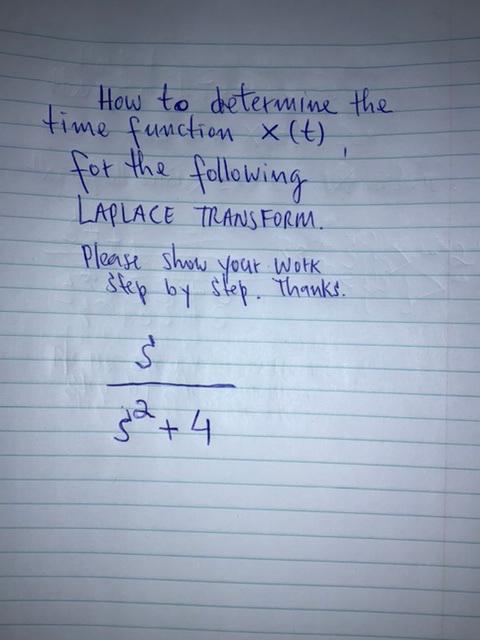 How to determine the
time function x(t),
for the following
LAPLACE TRANSFORM.
Please show your work
step by step. Thanks.
s
s²+4